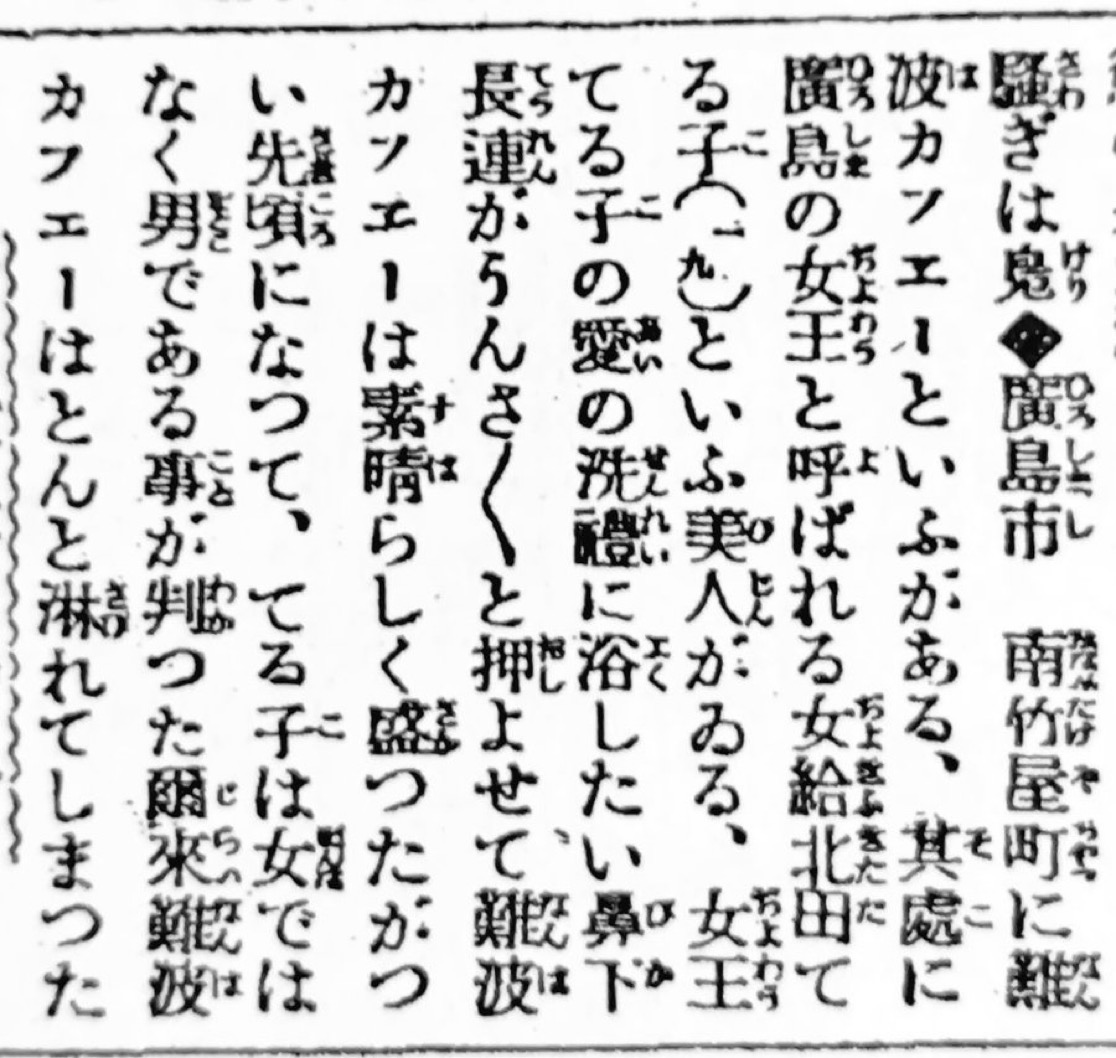 騒ぎは鳬◆廣島市　南竹屋町に難
波カフエーといふがある、其處に
廣島の女王と呼ばれる女給北田て
る子(一九)といふ美人がゐる、女王
てる子の愛の洗禮に浴したい鼻下
長連がうんさ〱と押よせて、難波
カフエーは素晴らしく盛つたがつ
い先頃になつて、てる子は女では
なく男である事が判つた爾來難波
カフエーはとんと淋れてしまつた